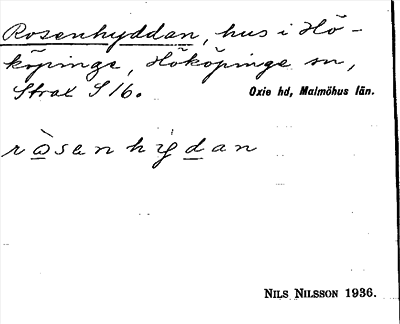 Rosenhyddan, hus i Hö-
köpinge, Hököpinge sn,
Strax S 16.
Oxie hd, Malmöhus län.
ròsenhỳdan
NILS NILSSON 1936.